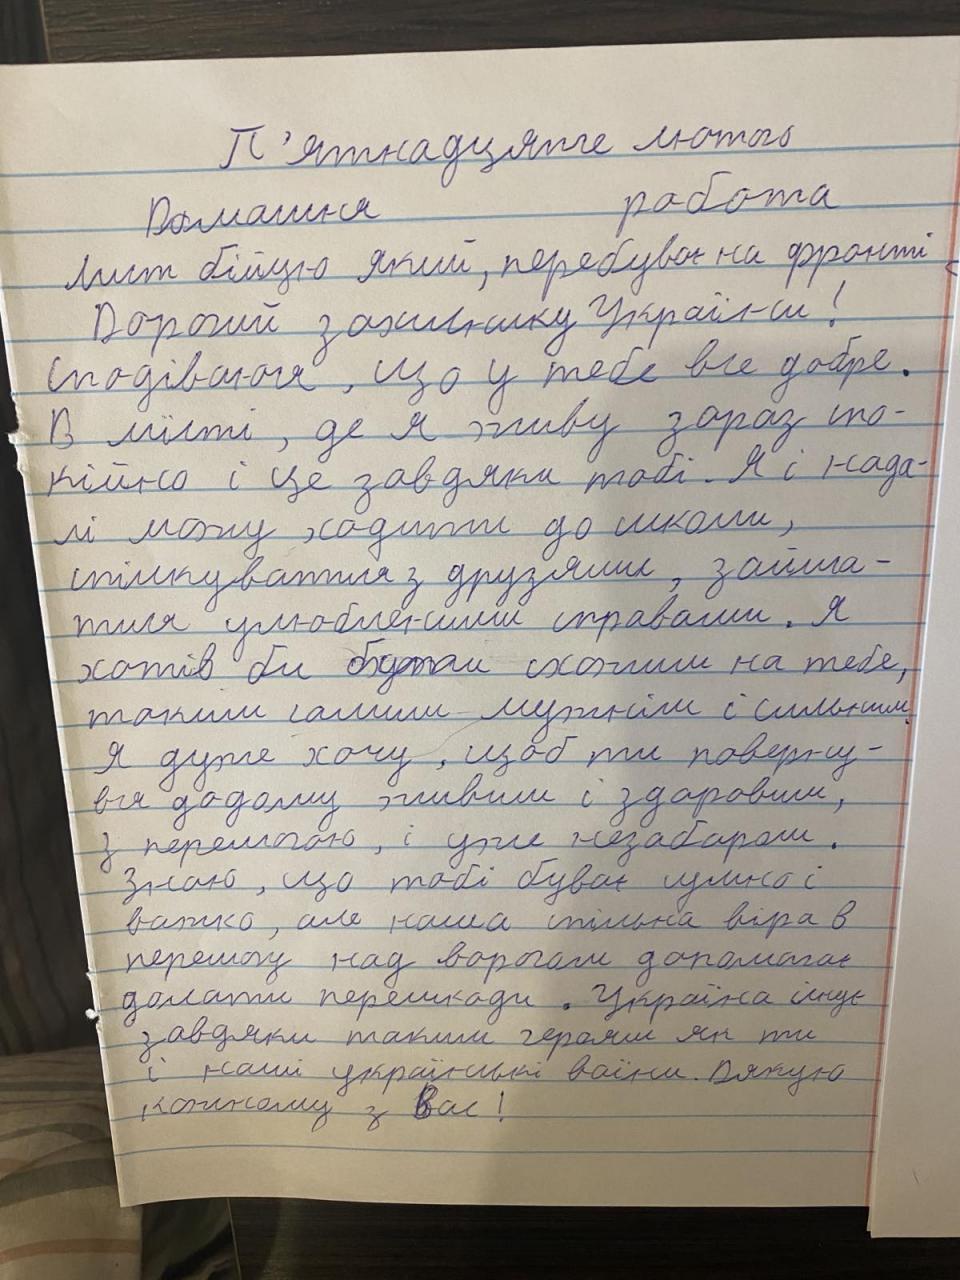 П'ятнадцяте лютого
Домашня робота
Лист бійцю який, перебуває на фронті
Дорогий захиснику України!
Сподіваюся, що у тебе все добре.
В місті, де я живу зараз спо-
кійно і це завдяки тобі. Я і нада-
лі можу ходити до школи,
спілкуватися з друзями, займа-
тися улюбленими справами. Я
хотів би бути схожим на тебе,
таким самим мужнім і сильним.
Я дуже хочу, щоб ти повернув-
вся додому живим і здоровим,
з перемогою, і уже незабаром.
Знаю, що тобі буває сумно і
важко, але наша спільна віра в
перемогу над ворогом допомагає
долати перешкоди. Україна існує
завдяки таким героям як ти
і наші українські воїни. Дякую
кожному з Вас!